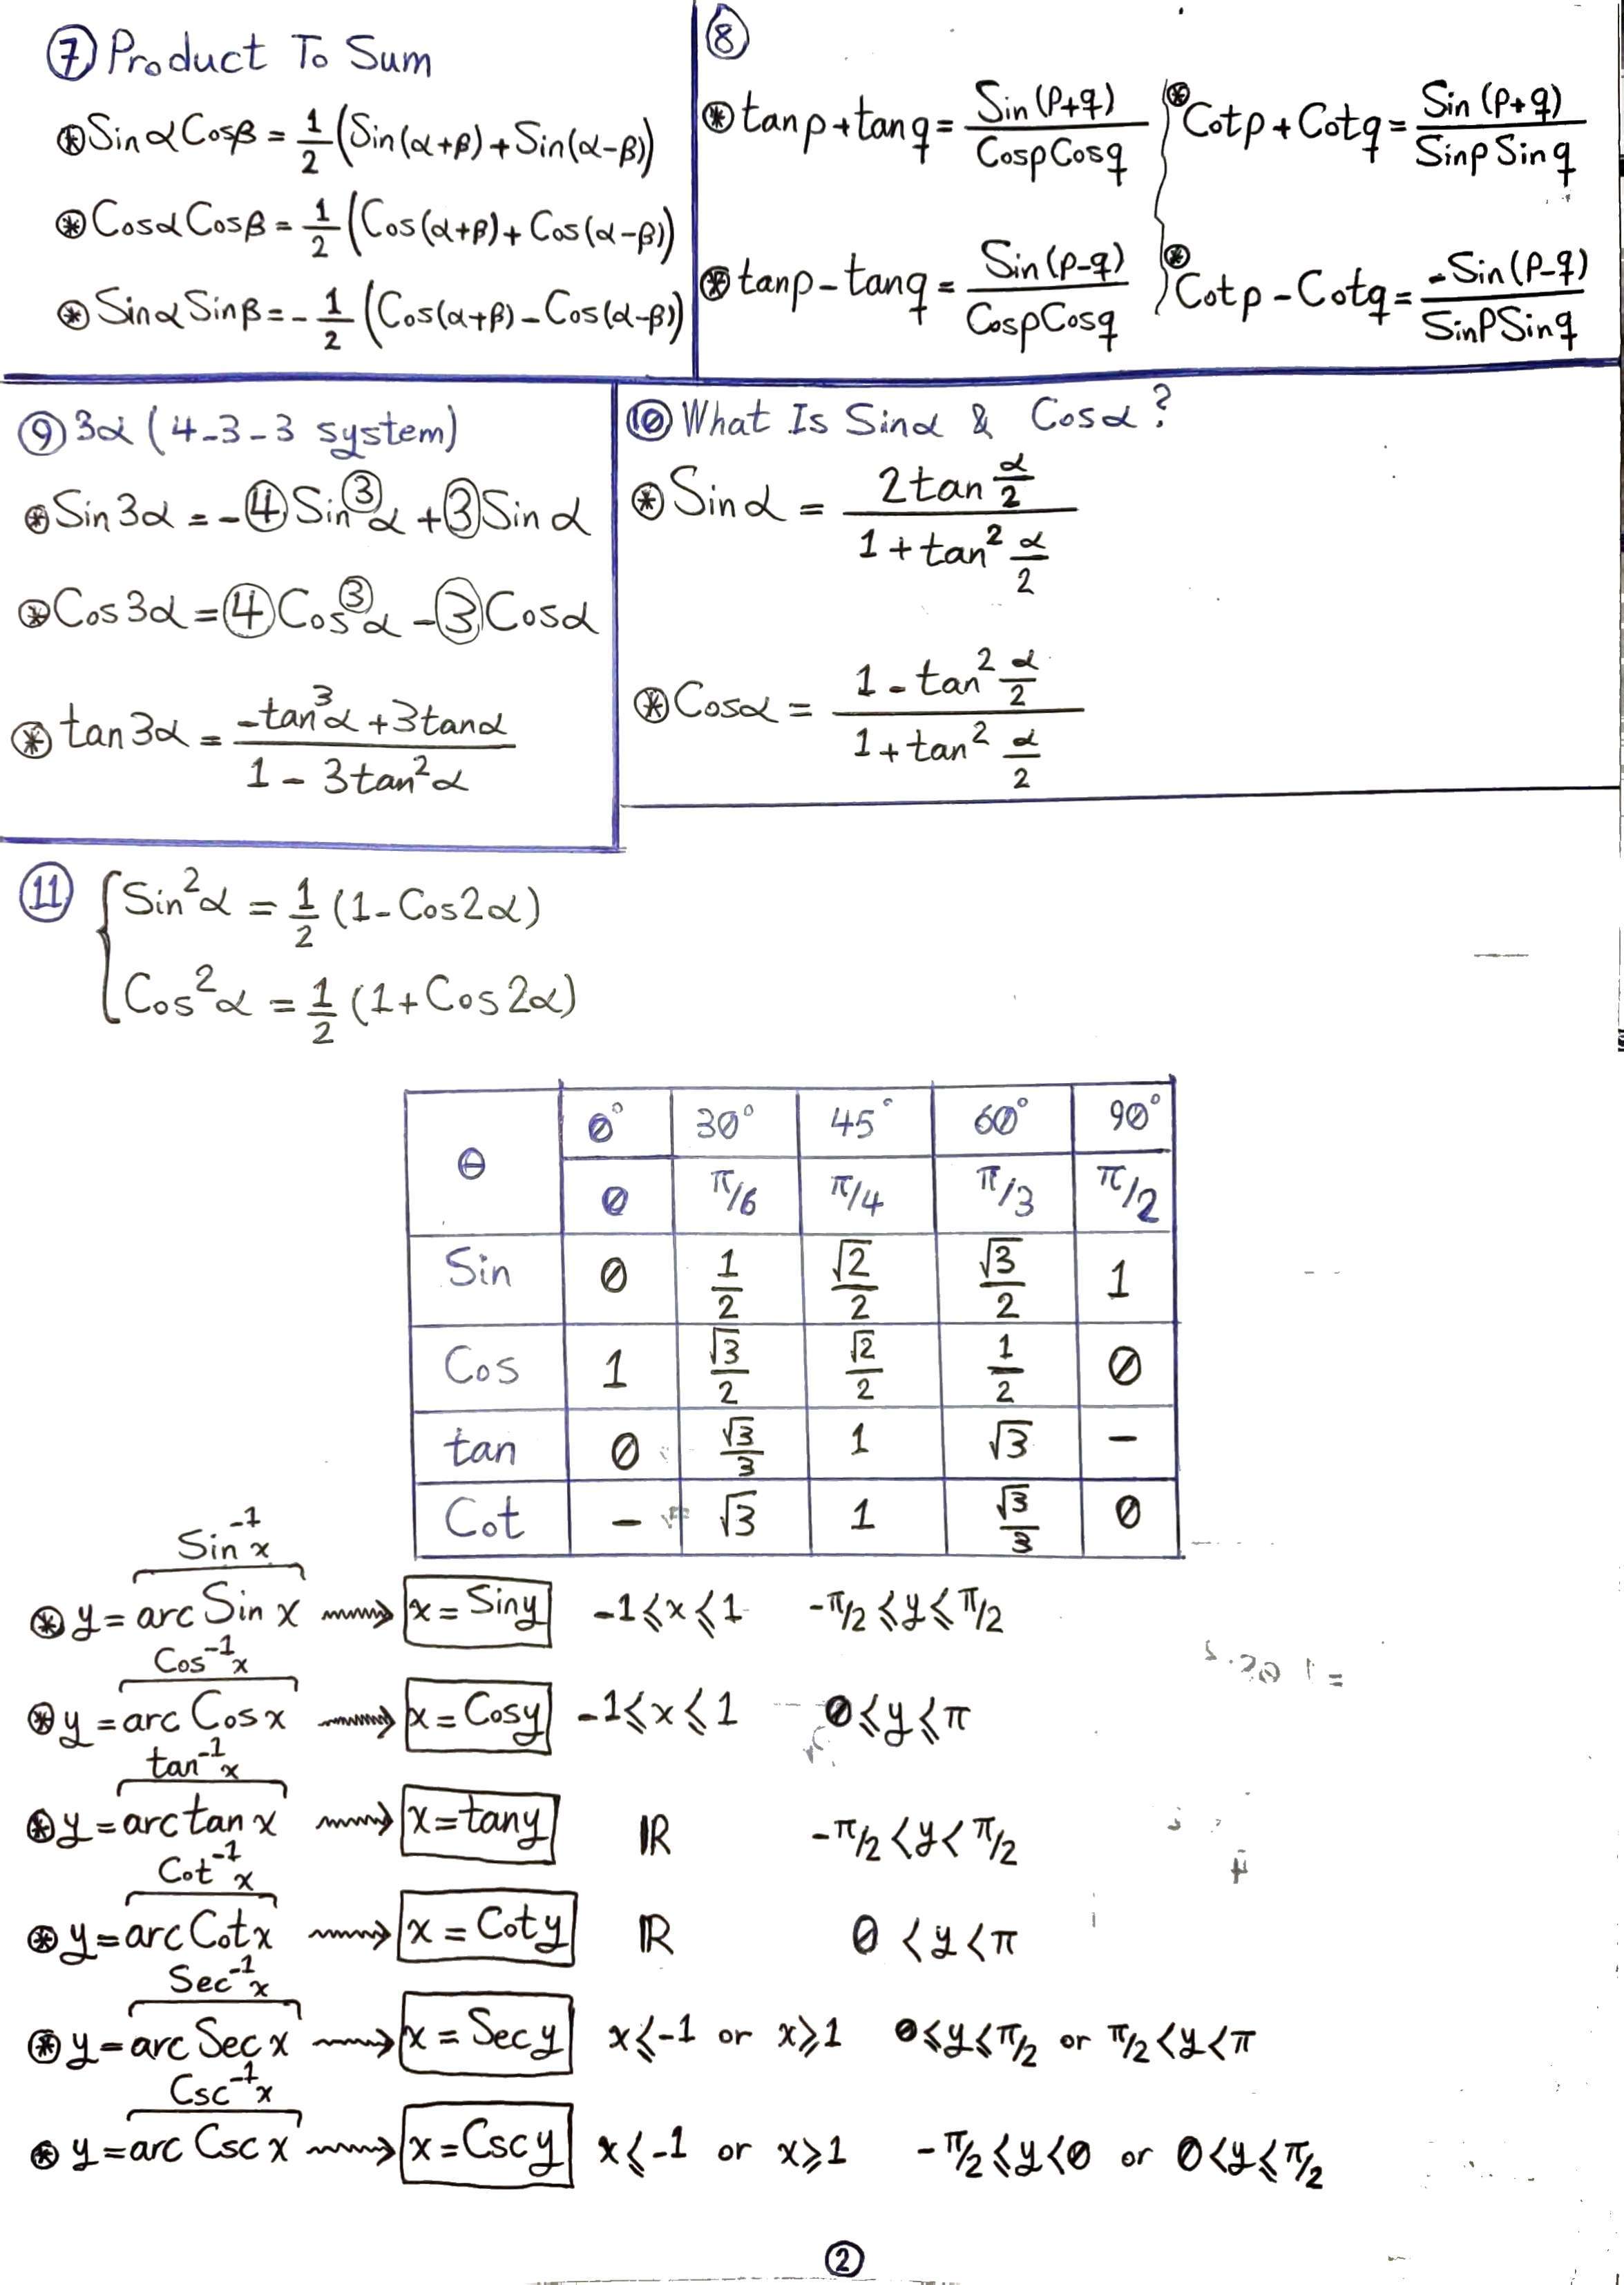 ⑦ Product To Sum
⊛ Sinα Cosβ = 1/2 (Sin(α+β) + Sin(α-β))
⊛ Cosα Cosβ = 1/2 (Cos(α+β) + Cos(α-β))
⊛ Sinα Sinβ = -1/2 (Cos(α+β) - Cos(α-β))
⑧
⊛ tanp + tanq = Sin(p+q) / CospCosq
⊛ Cotp + Cotq = Sin(p+q) / SinpSinq
⊛ tanp - tanq = Sin(p-q) / CospCosq
⊛ Cotp - Cotq = -Sin(p-q) / SinpSinq
⑨ 3α (4-3-3 system)
⊛ Sin3α = -④Sin^③α + ③Sinα
⊛ Cos3α = ④Cos^③α - ③Cosα
⊛ tan3α = (-tan³α + 3tanα) / (1 - 3tan²α)
⑩ What Is Sinα & Cosα?
⊛ Sinα = 2tan α/2 / (1 + tan² α/2)
⊛ Cosα = (1 - tan² α/2) / (1 + tan² α/2)
⑪ Sin²α = 1/2 (1 - Cos2α)
Cos²α = 1/2 (1 + Cos2α)
θ 0° 30° 45° 60° 90°
0 π/6 π/4 π/3 π/2
Sin 0 1/2 √2/2 √3/2 1
Cos 1 √3/2 √2/2 1/2 0
tan 0 √3/3 1 √3 -
Cot - √3 1 √3/3 0
Sin⁻¹x
⊛ y = arc Sin x → x = Siny -1 ≤ x ≤ 1 -π/2 ≤ y ≤ π/2
Cos⁻¹x
⊛ y = arc Cos x → x = Cosy -1 ≤ x ≤ 1 0 ≤ y ≤ π
tan⁻¹x
⊛ y = arctan x → x = tany ℝ -π/2 < y < π/2
Cot⁻¹x
⊛ y = arc Cotx → x = Coty ℝ 0 < y < π
Sec⁻¹x
⊛ y = arc Sec x → x = Sec y x ≤ -1 or x ≥ 1 0 ≤ y ≤ π/2 or π/2 < y < π
Csc⁻¹x
⊛ y = arc Csc x → x = Csc y x ≤ -1 or x ≥ 1 -π/2 ≤ y < 0 or 0 < y ≤ π/2
②